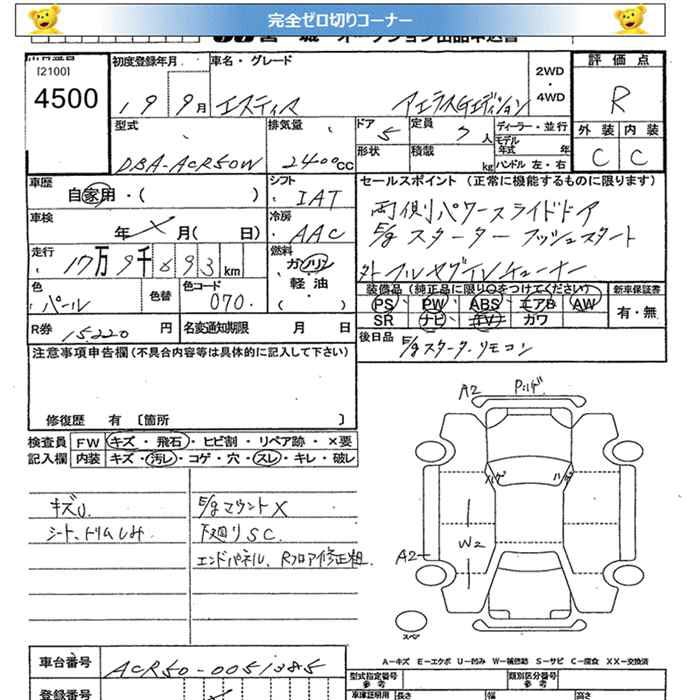 完全ゼロ切りコーナー
[2100]
4500
初度登録年月 車名・グレード 2WD ・ 4WD 評価点
19 9月 エスティマ アエラスGエディション R
型式 排気量 ドア 5 定員 7人 ディーラー・並行 外装 内装
DBA-ACR50W 2400cc 形状 積載 kg モデル年式 年 C C
ハンドル 左・右
車歴 シフト セールスポイント (正常に機能するものに限ります)
自家用・( ) IAT 両側パワースライドドア
車検 年 月( 日) 冷房 AAC E/gスターター プッシュスタート
走行 17万9千893km 燃料 ガソリン 外 フルセグTVチューナー
軽油・( )
色 パール 色替 色コード 070 装備品 (純正品に限り○をつけてください) 新車保証書
PS PW ABS エアB AW 有・無
SR ナビ TV カワ
R券 15220円 名変通知期限 月 日 後日品 E/gスターターリモコン
注意事項申告欄 (不具合内容等は具体的に記入して下さい)
修復歴 有 [箇所 ]
検査員 FW キズ・飛石・ヒビ割・リペア跡・×要
記入欄 内装 キズ・汚レ・コゲ・穴・スレ・キレ・破レ
キズU. E/gマウントX
シート、トリムしみ 下廻りSC.
エンドパネル、Rフロア修正粗.
A2
ハゲ ハゲ
W2
A2
スペア
A－キズ E－エクボ U－凹み W－補修跡 S－サビ C－腐食 XX－交換済
車台番号 ACR50-0051385 型式指定番号 参考 類別区分番号 参考
登録番号 車庫証明用 長さ 幅 高さ